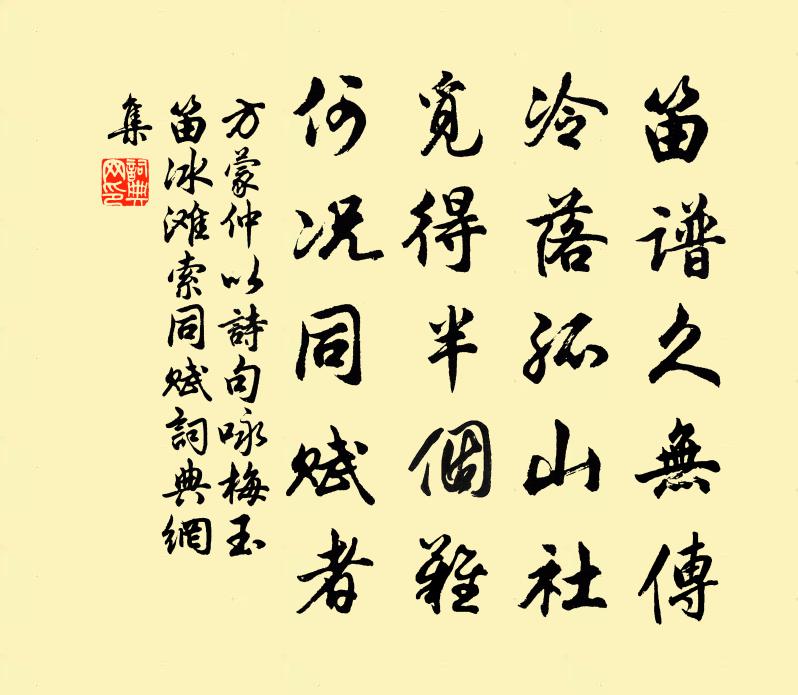 笛谱久無傳
冷落孤山社
覓得半個難
何况同赋者
方蒙仲以詩句咏梅玉
笛冰滩索同赋詞典網
集
詞典
网印